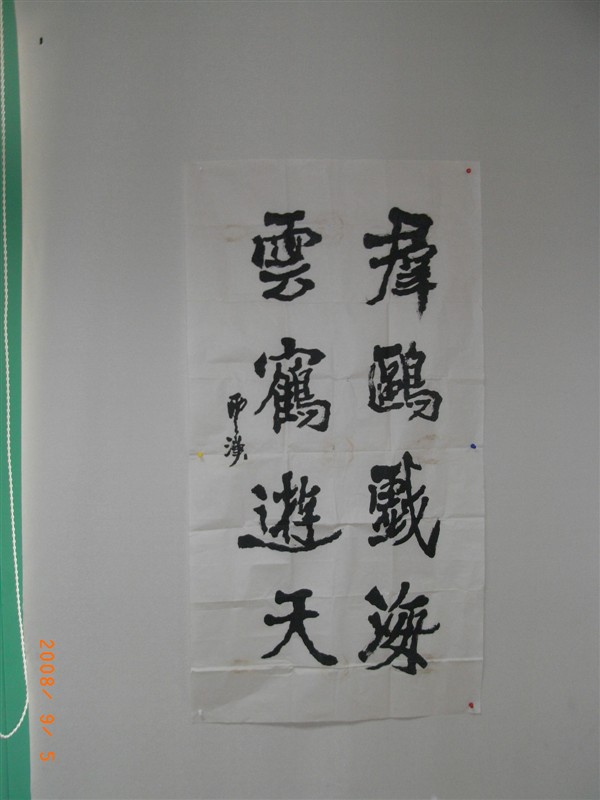 羣鷗戲海
雲鶴遊天
2008/ 9/ 5